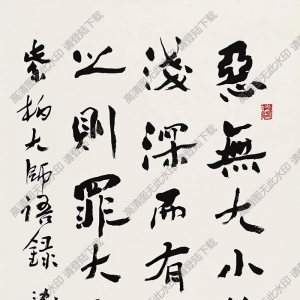 惡無大小
淺深而有
之則罪大
紫柏大師語録